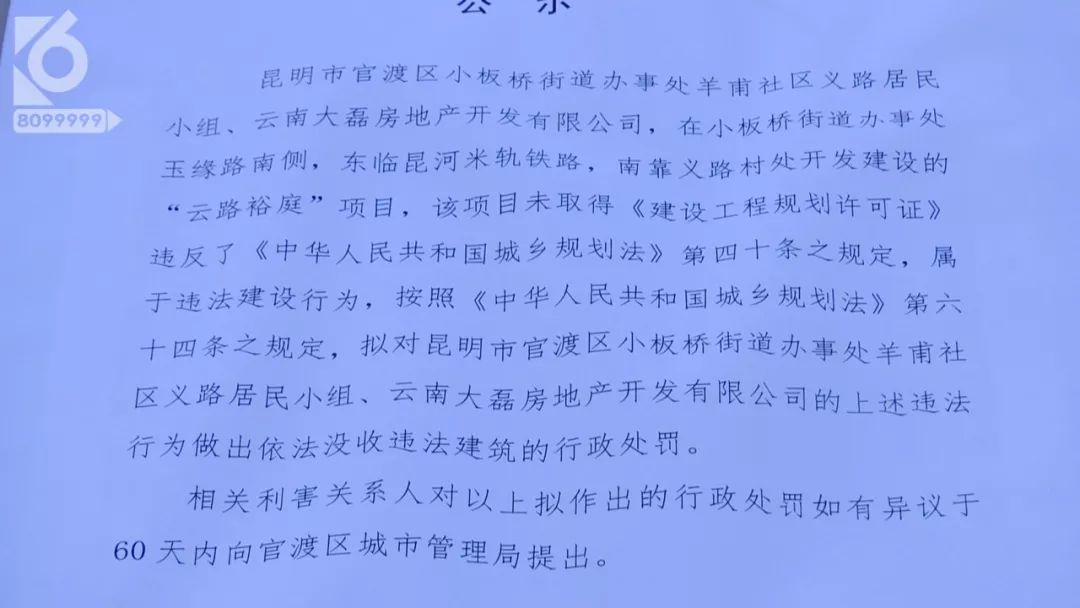 K6
8099999
公 示
昆明市官渡区小板桥街道办事处羊甫社区义路居民
小组、云南大磊房地产开发有限公司，在小板桥街道办事处
玉缘路南侧，东临昆河米轨铁路，南靠义路村处开发建设的
“云路裕庭”项目，该项目未取得《建设工程规划许可证》
违反了《中华人民共和国城乡规划法》第四十条之规定，属
于违法建设行为，按照《中华人民共和国城乡规划法》第六
十四条之规定，拟对昆明市官渡区小板桥街道办事处羊甫社
区义路居民小组、云南大磊房地产开发有限公司的上述违法
行为做出依法没收违法建筑的行政处罚。
相关利害关系人对以上拟作出的行政处罚如有异议于
60 天内向官渡区城市管理局提出。